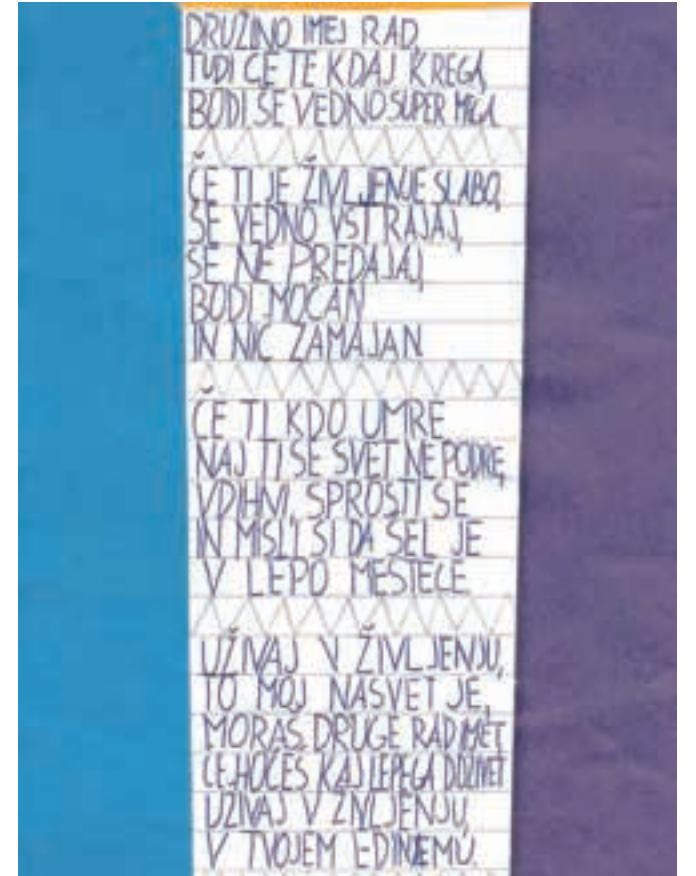 DRUŽINO IMEJ RAD,
TUDI ČE TE KDAJ KREGA,
BODI ŠE VEDNO SUPER MEGA.
ČE TI JE ŽIVLJENJE SLABO,
ŠE VEDNO VSTRAJAJ,
SE NE PREDAJAJ,
BODI MOČAN
IN NIČ ZAMAJAN.
ČE TI KDO UMRE
NAJ TI SE SVET NE PODRE,
VDIHNI, SPROSTI SE
IN MISLI SI DA ŠEL JE
V LEPO MESTECE.
UŽIVAJ V ŽIVLJENJU,
TO MOJ NASVET JE,
MORAŠ DRUGE RAD IMET
ČE HOČEŠ KAJ LEPEGA DOŽIVET
UŽIVAJ V ŽIVLJENJU,
V TVOJEM EDINEMU.